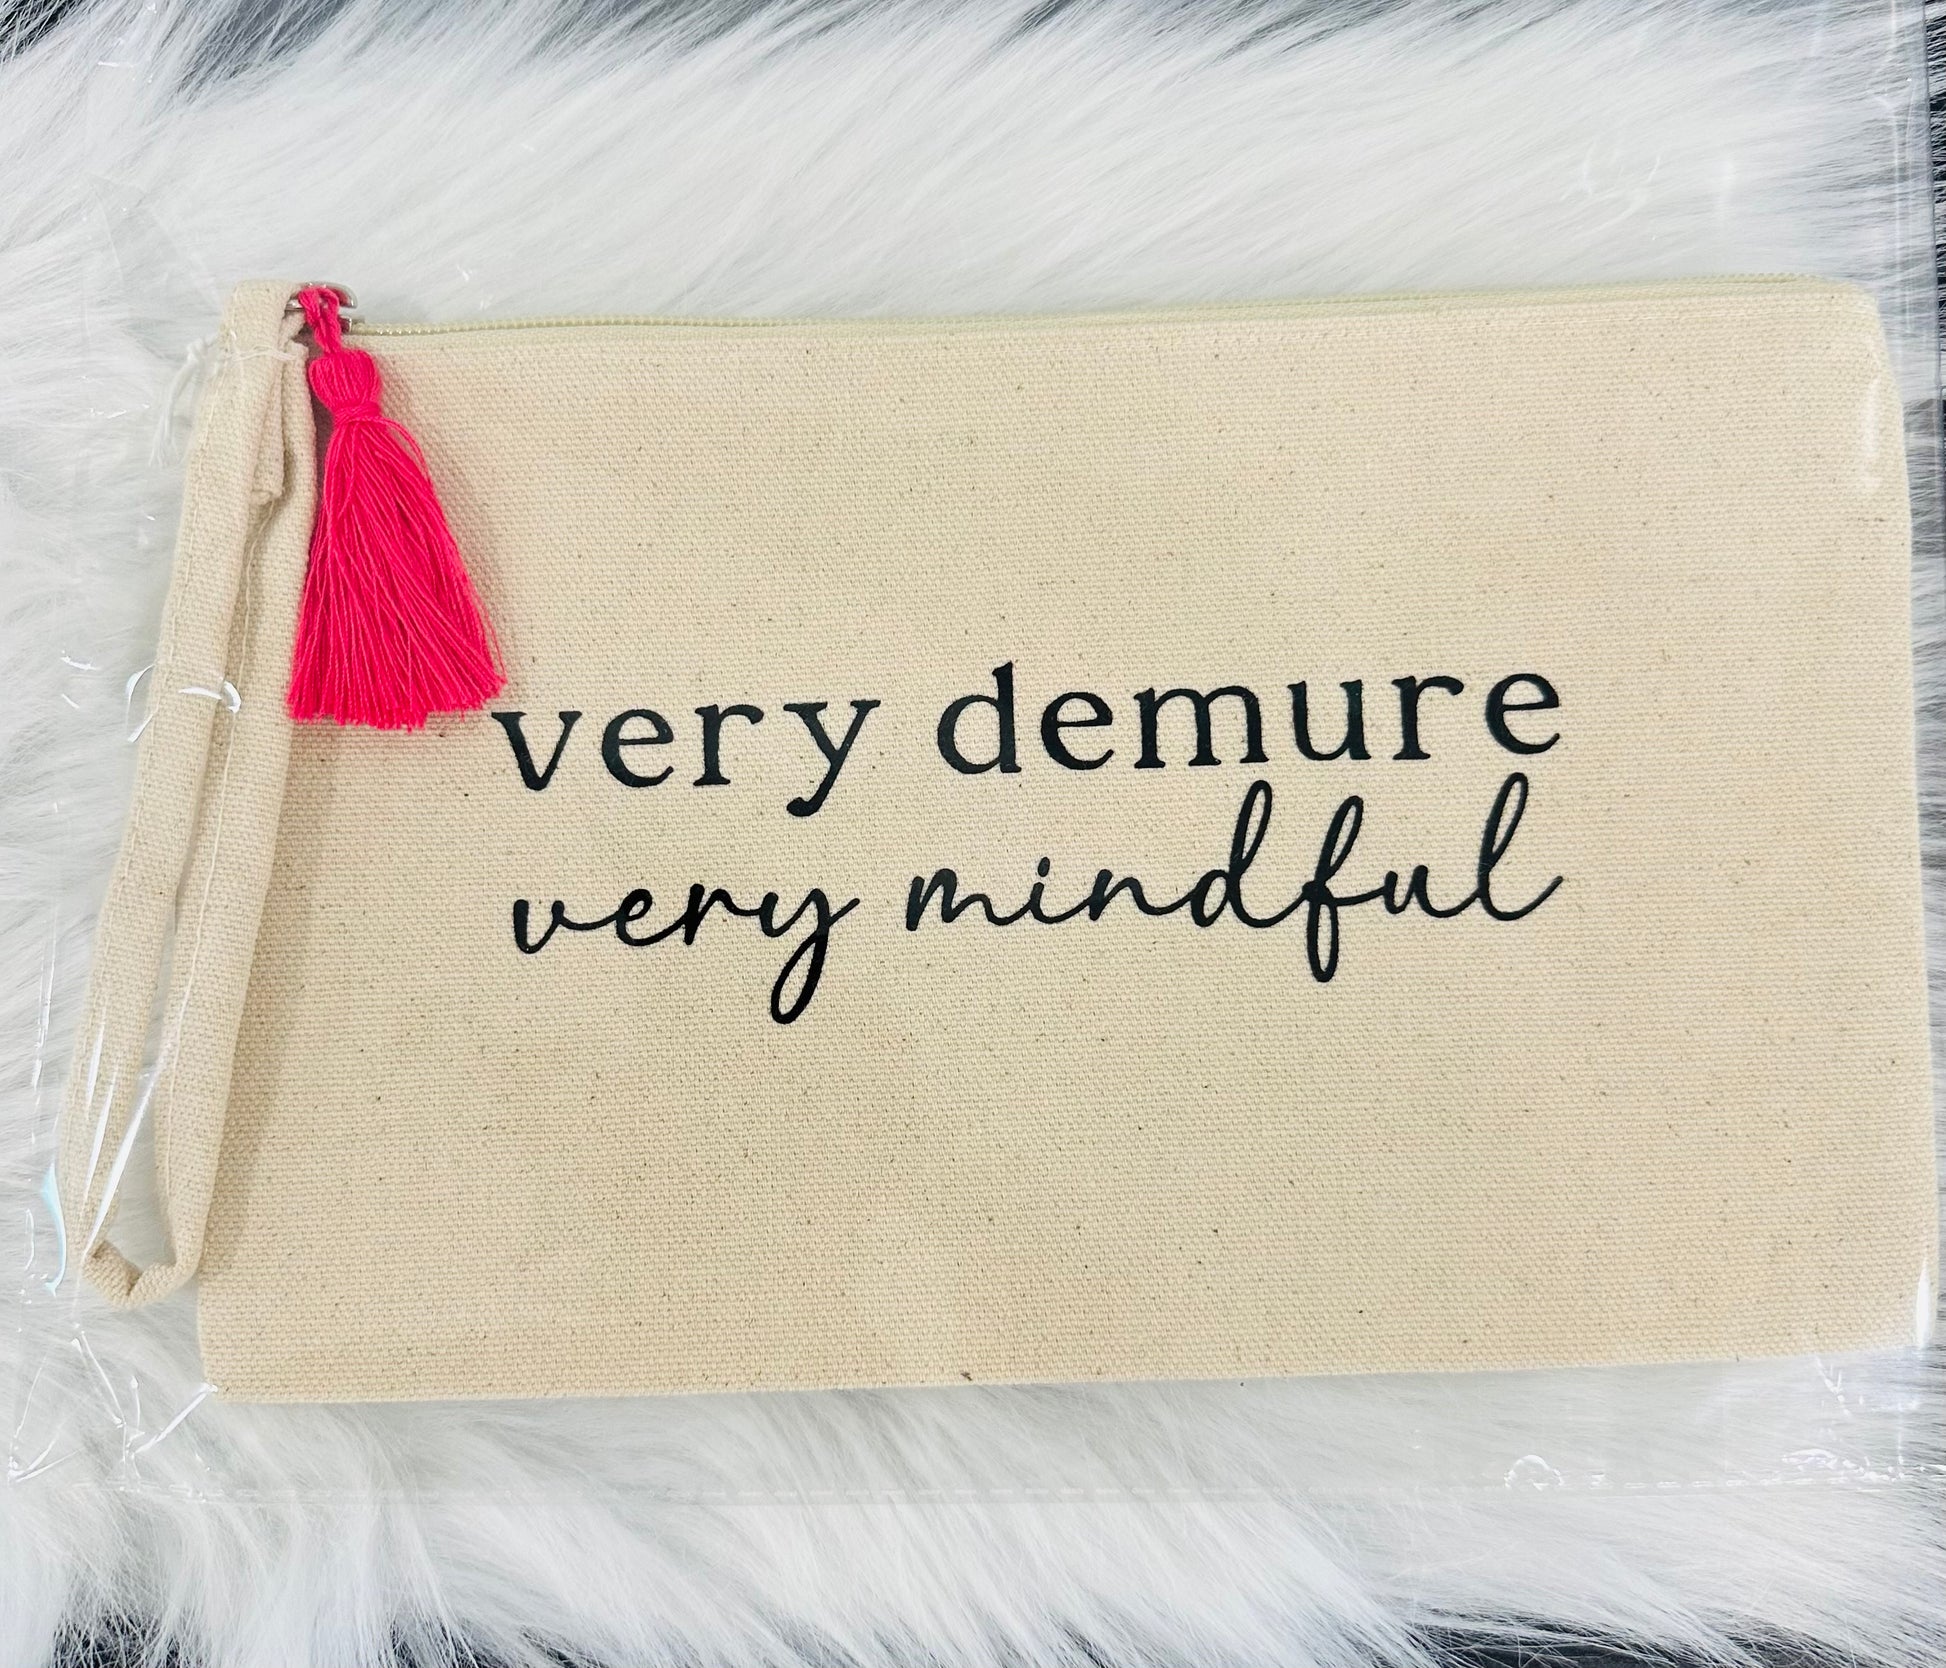 very demure
very mindful